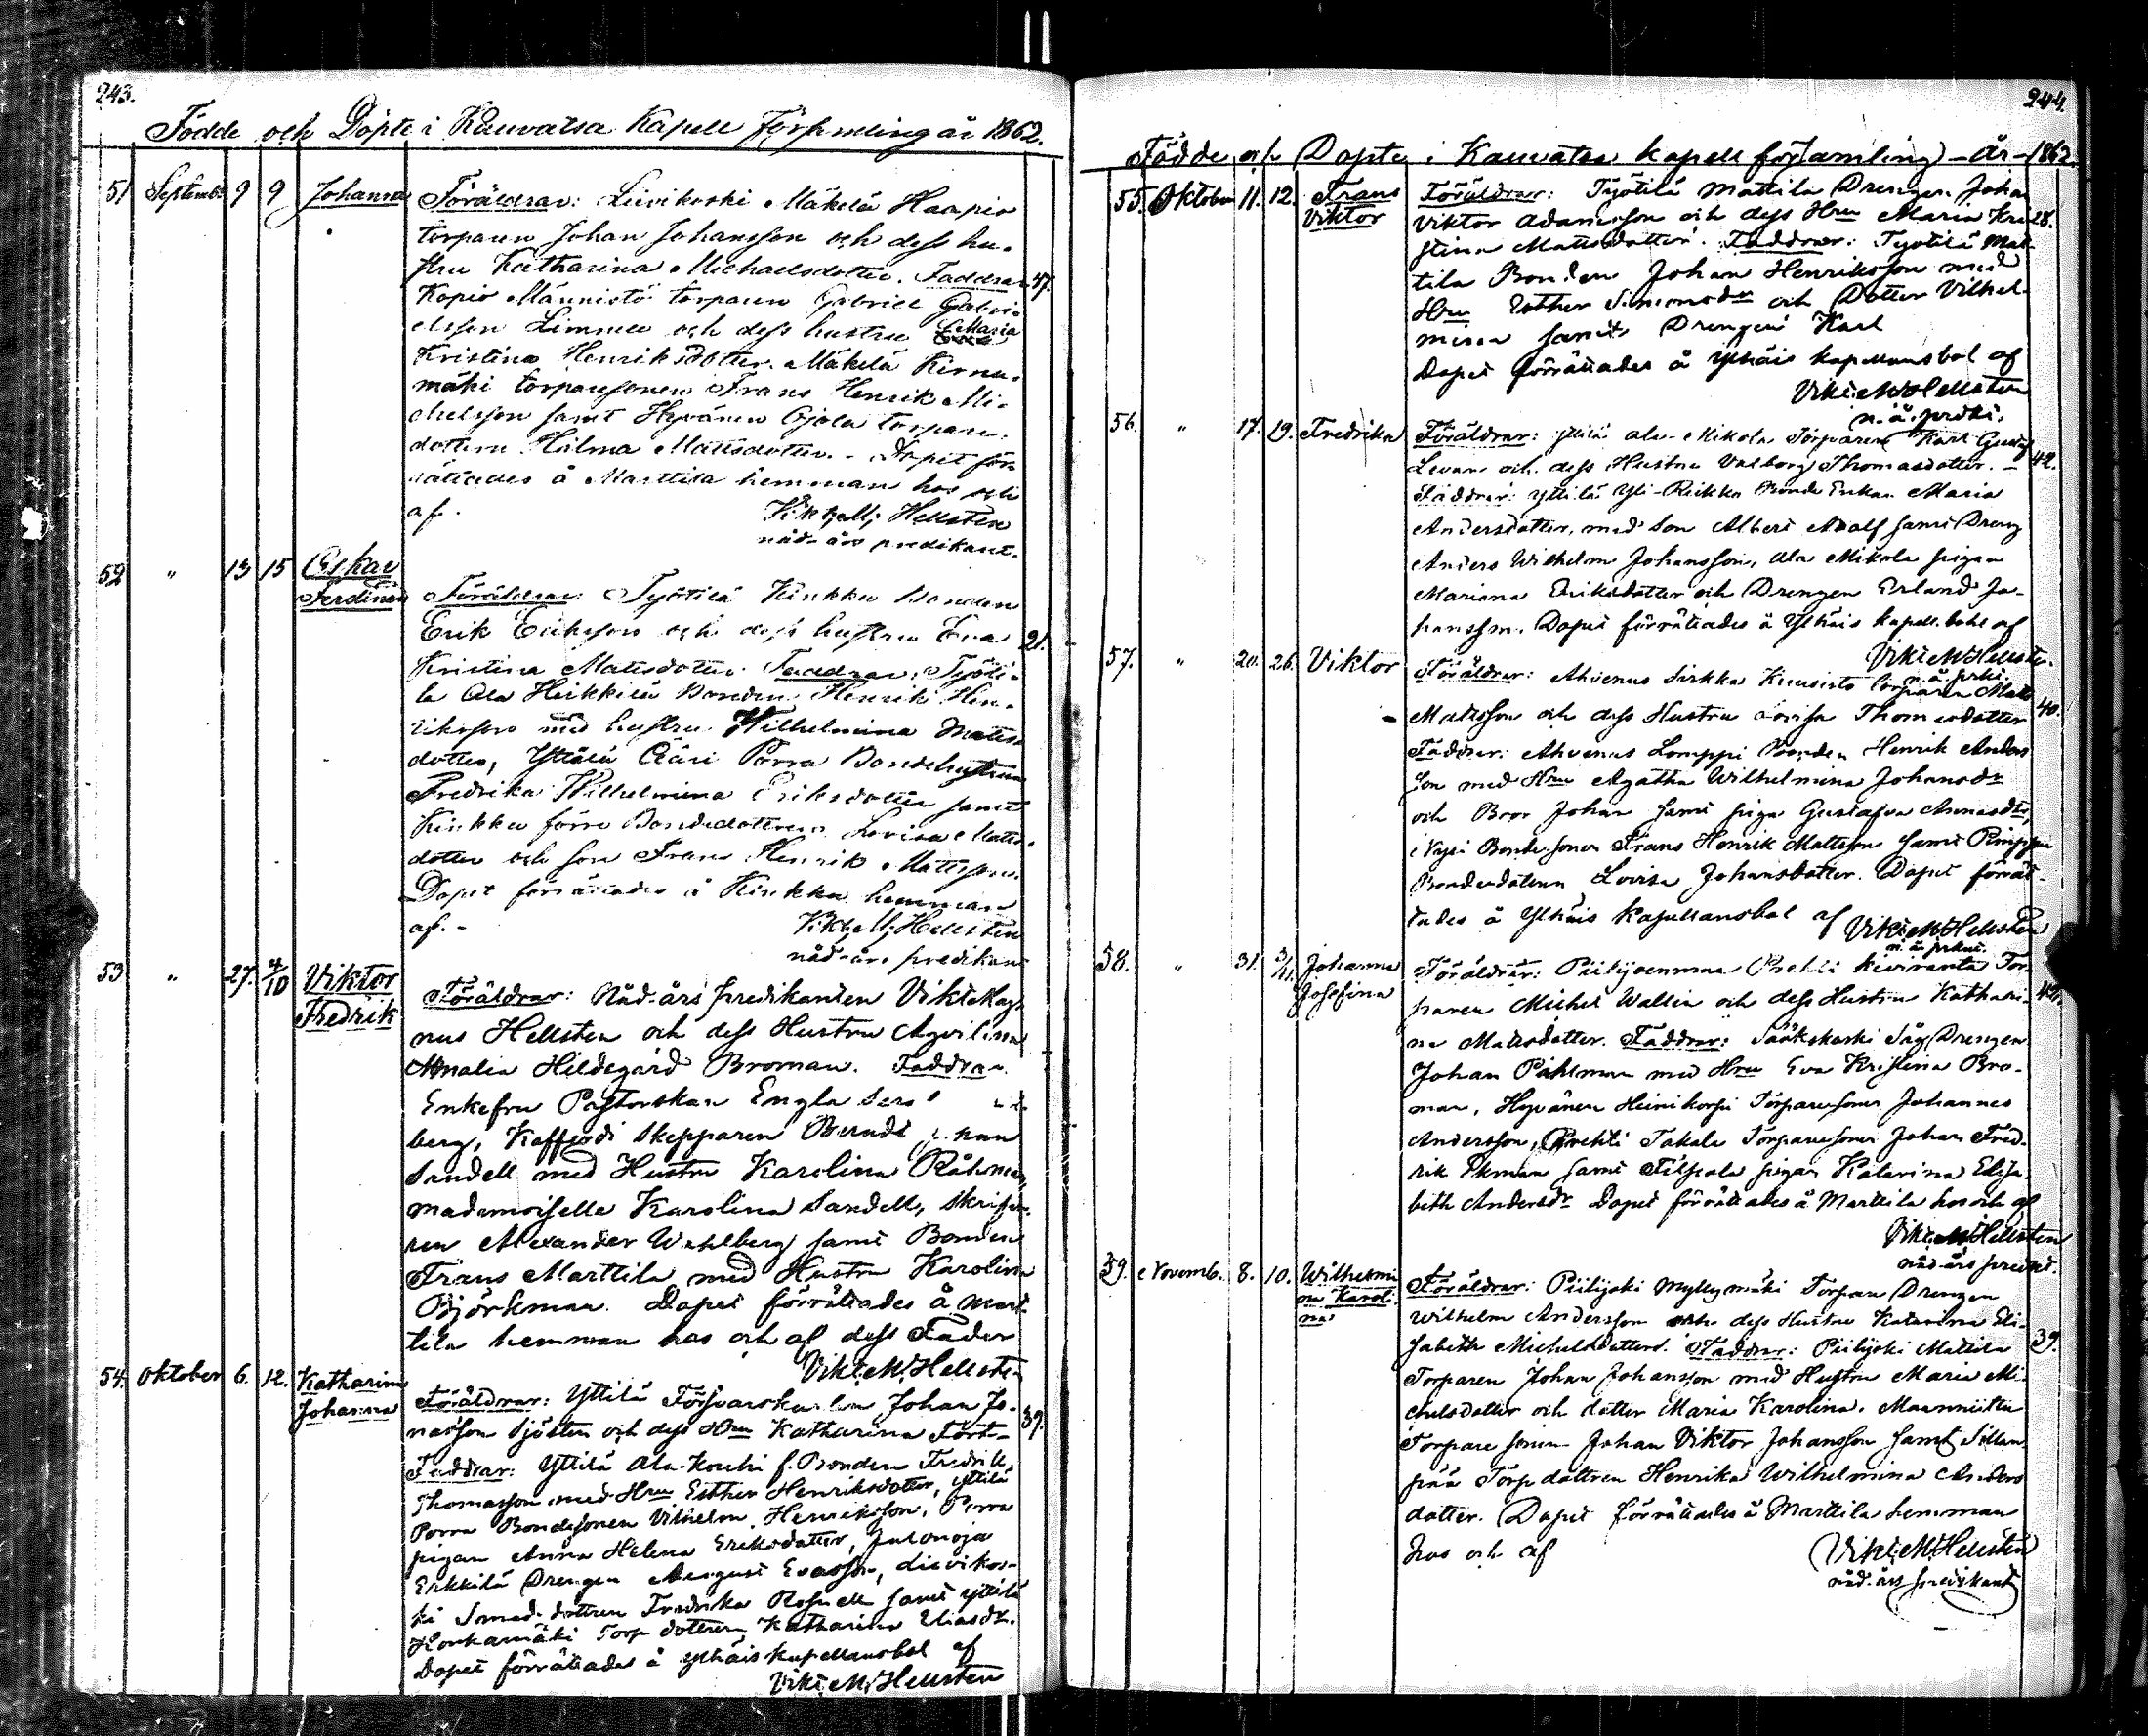 243.
Födde och Döpte i Kauvatsa Kapell församling år 1862.
51 Septemb. 9 9 Johanna Föräldrar: Lievikoski Mäkelä Haapio
torparen Johan Johansson och dess hu-
stru Katharina Michaelsdotter. Faddrar 47.
Kopio Männistö torparen Gabriel Gabri-
elsson Limnell och dess hustru Maria
Kristina Henriksdotter. Mäkelä Kirnu-
mäki torparesonen Frans Henrik Mi-
chelsson samt Hyvänen Ojola torpare-
dottern Hilma Mattsdotter. - Dopet för-
rättades å Marttila hemman hos och
af. Vikt. M. Hellsten
nåd-års predikant.
52 " 13 15 Oskar
Ferdinand Föräldrar: Työtilä Kinkku Bonden
Erik Eriksson och dess hustru Eva 21.
Kristina Mattsdotter. Faddrar: Työti-
lä Ala Heikkilä Bonden Henrik Hen-
riksson med hustru Wilhelmina Matts-
dotter, Yttilä Ääri Porra Bondehustrun
Fredrika Wilhelmina Eriksdotter samt
Kinkku förre Bondedottren Lovisa Matts-
dotter och son Frans Henrik Mattsson.
Dopet förrättades å Kinkku hemman
af. - Vikt. M. Hellsten
nåd-års predikant
53 " 27. 4/10 Viktor
Fredrik Föräldrar: Nåd-års predikanten Vikt. Mag-
nus Hellsten och dess Hustru Aqvilina
Amalia Hildegård Broman. Faddrar.
Enkefru Pastorskan Engla
berg, Kaffardi Skepparen Berndt
Sandell med Hustru Karolina Råhman,
mademoiselle Karolina Sandell, skrifva-
ren Alexander Wahlberg samt Bonden
Frans Marttila med Hustru Karolina
Björkman. Dopet förrättades å Mart-
tila hemman hos och af dess Fader
Vikt. M. Hellsten
54. Oktober 6. 12. Katharina
Johanna Föräldrar: Yttilä Försvarskarlen Johan Jo-
nasson Sjösten och dess Hru Katharina 39.
Faddrar: Yttilä Ala-Kouhi f. Bonden Fredrik
Thomasson med Hru Esther Henriksdotter, Yttilä
Porra Bondesonen Vilhelm Henriksson, Porra
pigan Anna Helena Eriksdotter, Jalonoja
Erkkilä Drengen August Evasson, Lievikos-
ki Smed-dottren Fredrika Rosnell samt Yttilä
Honkamäki Torp dottren Katharina Eliasdr.
Dopet förrättades å Ylhäis kapellansbol af
Vikt. M. Hellsten
244.
Födde och Döpte i Kauvatsa kapell församling - År - 1862.
55. Oktober 11. 12. Frans
Viktor Föräldrar: Työtilä Mattila Drengen Johan
Viktor Adamsson och dess Hru Maria Kri- 28.
stina Mattsdotter. Faddrar: Tyotilä Mat-
tila Bonden Johan Henriksson med
Hru Esther Simonsdr och Dotter Vilhel-
mina samt Drengen Karl
Dopet förrättades å Ylhäis kapellansbol af
Vikt. M. Hellsten
n. å. predkt.
56. " 17. 19. Fredrika Föräldrar: Yttilä Ala-Mikola Torparen Karl Gustaf
Levan och dess Hustru Valborg Thomasdotter. - 42.
Faddrar: Yttilä Yli-Rickko Bonde Enkan Maria
Andersdotter, med Son Albert Adolf samt Dreng
Anders Wilhelm Johansson, Ala Mikola pigan
Mariana Eriksdotter och Drengen Erland Jo-
hansson. Dopet förrättades å Ylhäis kapell.bohl af
Vikt. M. Hellsten
n. å. prkt.
57. " 20. 26. Viktor Föräldrar: Ahvenus Sirkka Kuusisto torparen Matts
Mattsson och dess Hustru Lovisa Thomasdotter 40.
Faddrar: Ahvenus Lomppi Bonden Henrik Anders
son med Hru Agatha Wilhelmina Johansdr
och Bror Johan samt piga Gustafva Annasdtr,
i Nysi Bonde Sonen Frans Henrik Mattsson samt Pimppi
Bondedottren Lovisa Johansdotter. Dopet förrät-
tades å Ylhäis kapellansbol af Vikt. M. Hellsten
n. å. prkt.
58. " 31. 3/11. Johanna
Josefina Föräldrar: Piilijoenmaa Prehti Kiviranta Tor-
paren Michel Wallin och dess Hustru Kathari-
na Mattsdotter. Faddrar: Sääkskoski Såg Drengen
Johan Påhlman med Hru Eva Kristina Bro-
man, Hyvänen Heinikorpi Torparesonen Johannes
Andersson, Prehti Takala Torparesonen Johan Fred-
rik Ekman samt pigan Katarina Elisa-
beth Andersdr Dopet förrättades å Marttila hos och af
Vikt. M. Hellsten
nåd-års predkt.
59. Novemb. 8. 10. Wilhelmi
na Karoli
na Föräldrar: Piilijoki Myllymäki Torpare Drengen
Wilhelm Andersson och dess Hustru Katarina Eli-
sabeth Michelsdotter. Faddrar: Piilijoki Mattila 39.
Torparen Johan Johansson med Hustru Maria Mi-
chelsdotter och dotter Maria Karolina. Maanniittu
Torpare sonen Johan Viktor Johansson samt Sillan-
pää Torp dottren Henrika Wilhelmina Anders
dotter. Dopet förrättades å Marttila hemman
hos och af Vikt. M. Hellsten
nåd-års predikant